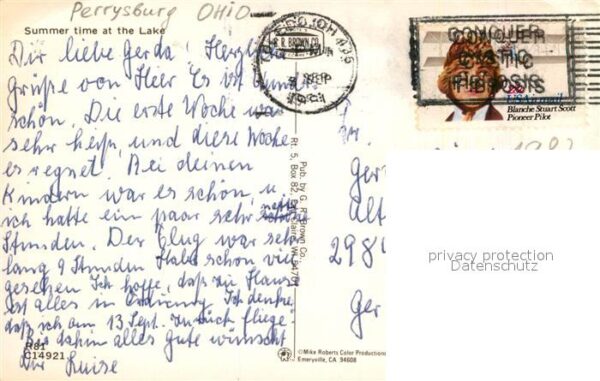 Perrysburg OHIO
Summer time at the Lake
Dir liebe Gerda! Herzliche
Grüße von Hier Es ist
schön. Die erste Woche war
sehr heiß, und diese Woche
es regnet. Bei deinen
Kindern war es schön, u.
ich hatte ein paar sehr nette
Stunden. Der Flug war sehr
lang 9 Stunden Habe schon viel
gesehen Ich hoffe, daß zu Haus
ist alles in Ordnung Ich denke,
daß ich am 13 Sept. zurück fliege
Bis dahin alles gute wünscht
Dir Luise
R81
C14921
Pub. by G. R. Brown Co.,
Rt. 5, Box 82, Eau Claire, WI 54701
©Mike Roberts Color Productions
Emeryville, CA 94608
G. R. BROWN CO.
SEP
CONQUER
CYSTIC
FIBROSIS
USAirmail
Blanche Stuart Scott
Pioneer Pilot
Ger
Alt
2984
Ger
privacy protection
Datenschutz